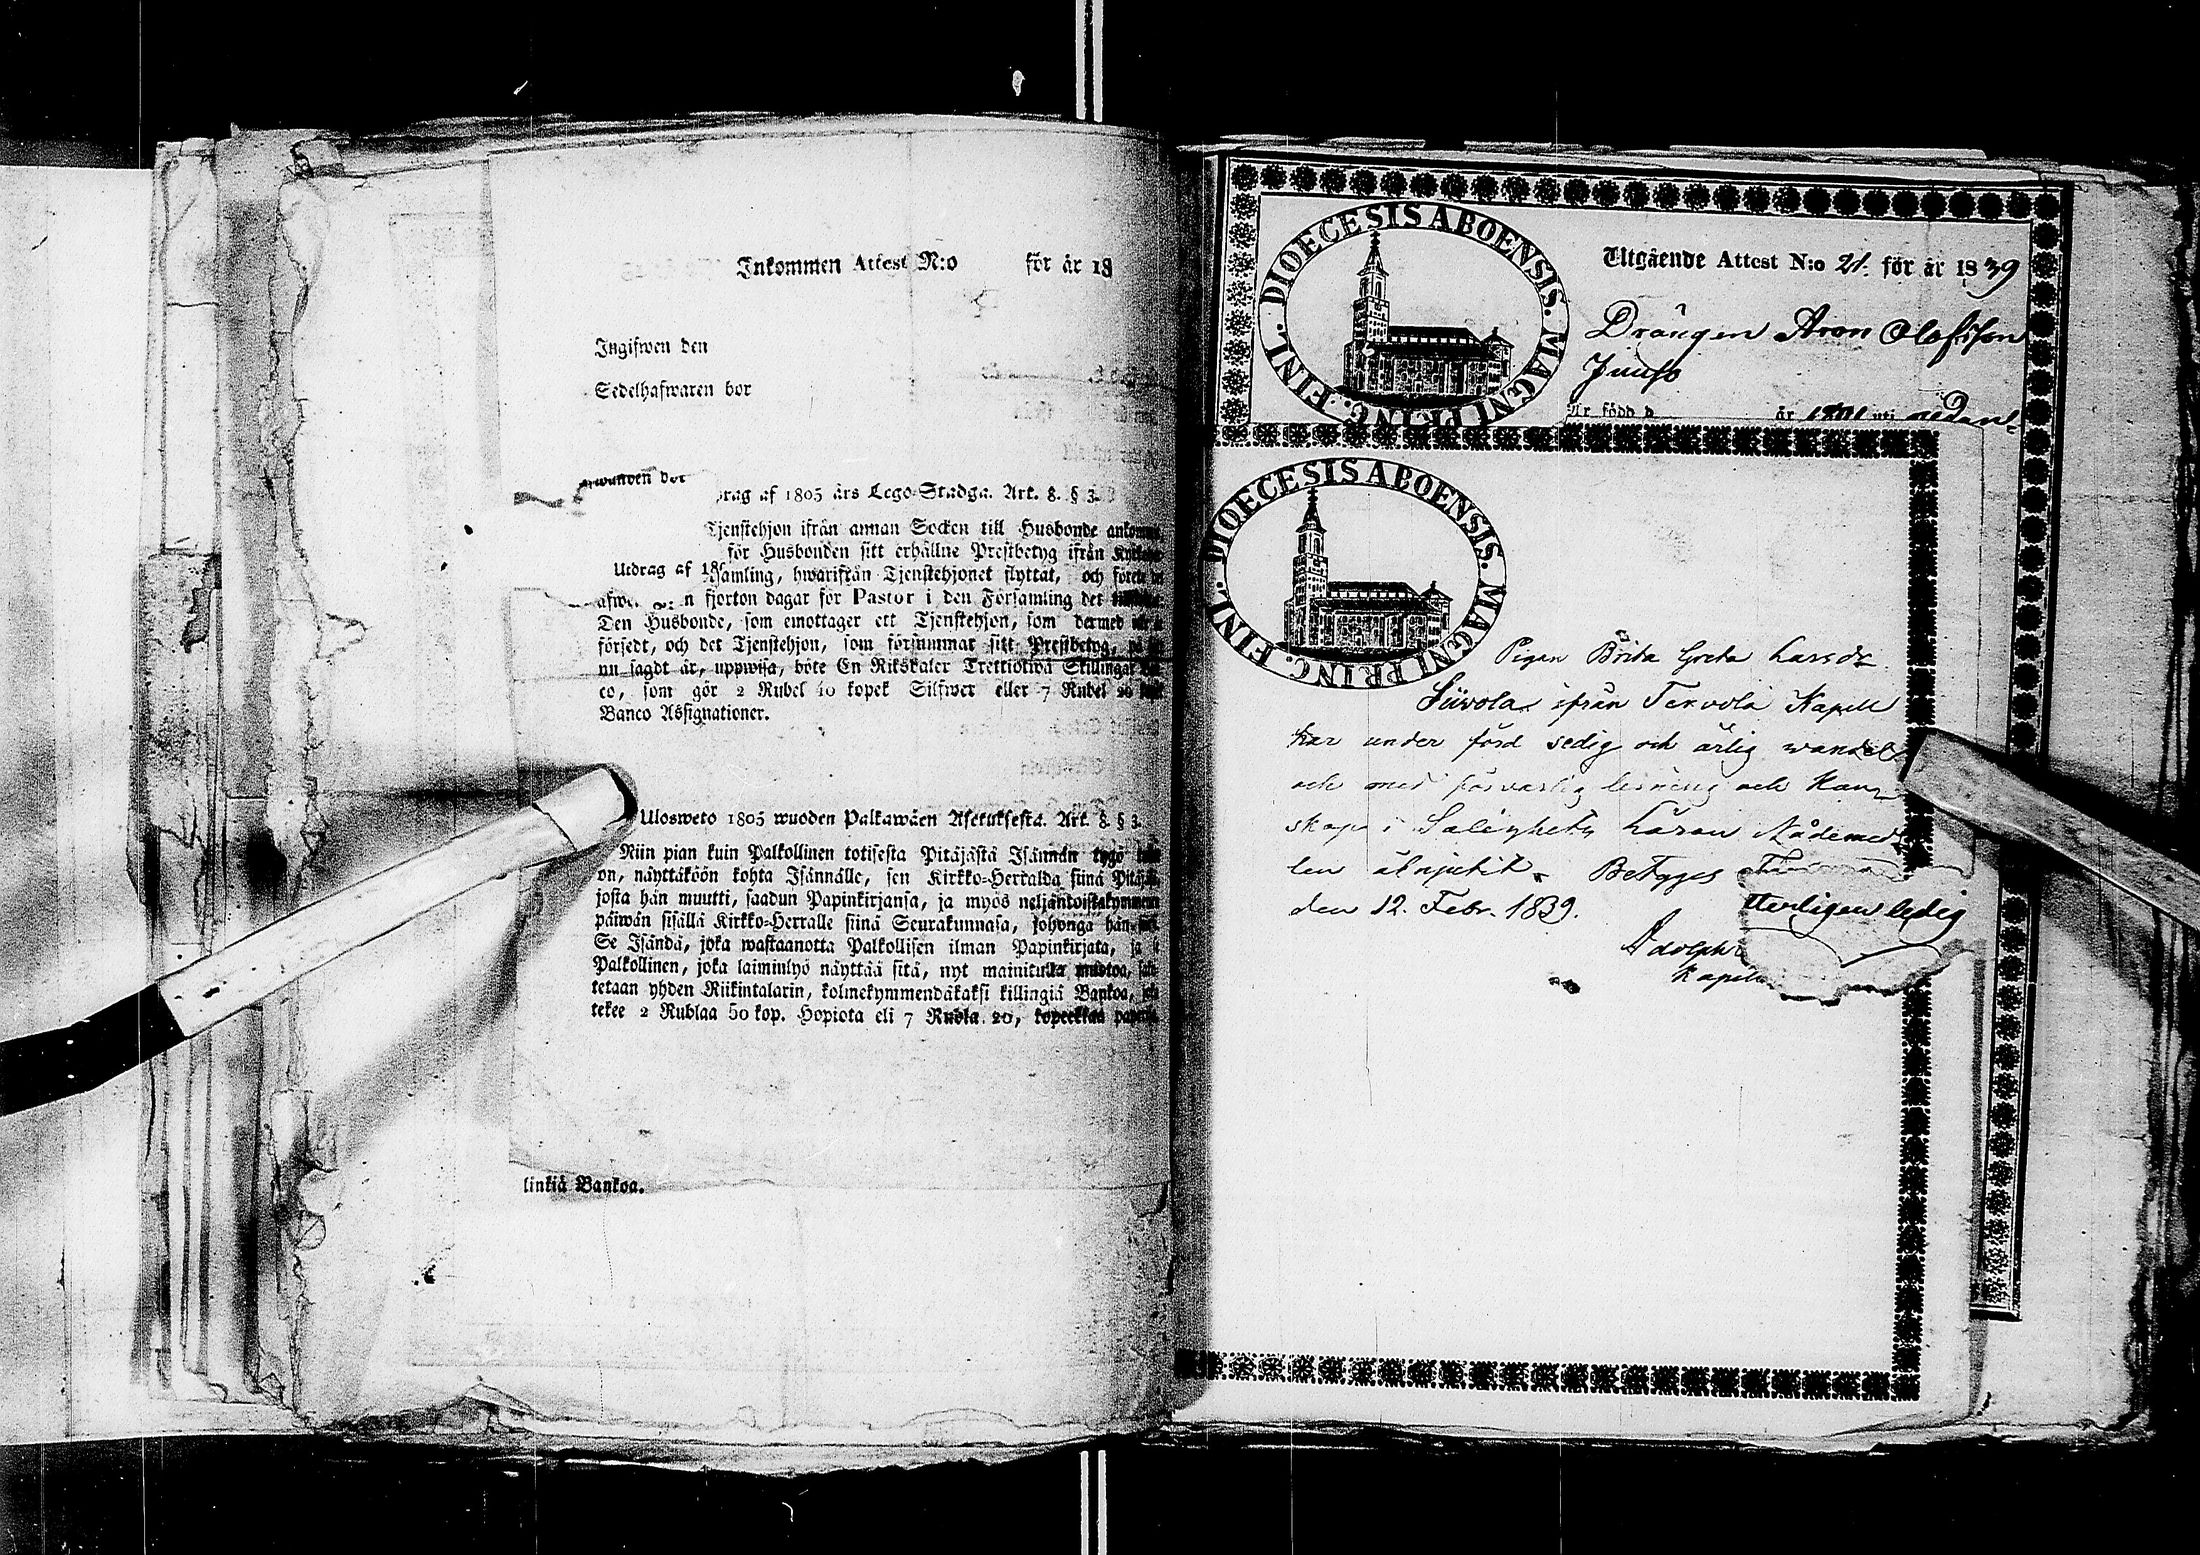 Inkommen Attest N:o för år 18
Ingifwen den
Sedelhafwaren bor
af 1805 års Lego-Stadga. Art. 8. § 3.
Tjenstehjon ifrån annan Socken till Husbonde
för Husbonden sitt erhållne Prestbetyg ifrån
Utdrag af 18
samling, hwarifrån Tjenstehjonet flyttat, och
n fjorton dagar för Pastor i den Församling det
Den Husbonde, som emottager ett Tjenstehjon, som dermed
försedt, och det Tjenstehjon, som försummar sitt Prestbetyg,
nu sagdt är, uppwisa, böte En Riksdaler Trettiotwå Skillingar
co, som gör 2 Rubel 40 kopek Silfwer eller 7 Rubel 20
Banco Assignationer.
Ulosweto 1805 wuoden Palkawäen Asetuksesta. Art. 8 § 3.
Niin pian kuin Palkollinen totisesta Pitäjästä Isännän tygö
on, näyttäköön kohta Isännälle, sen Kirkko-Herralda siinä
josta hän muutti, saadun Papinkirjansa, ja myös neljäntoistakymmenen
päiwän sisällä Kirkko-Herralle siinä Seurakunnasa, johonga hän
Se Isändä, joka wastaanotta Palkollisen ilman Papinkirjata, ja
Palkollinen, joka laiminlyö näyttää sitä, nyt mainitulla muotoa,
tetaan yhden Riikintalarin, kolmekymmendäkaksi killingiä Bankoa,
tekee 2 Rublaa 50 kop. Hopiota eli 7 Rubla 20, kopeekkaa
linkiä Bankoa.
DIOECESIS ABOENSIS. MAGNI PRINC. FINL.
Utgående Attest N:o 21. för år 1839
Drängen Aron Olofsson
Juuso
är född d år uti nedan-
DIOECESIS ABOENSIS. MAGNI PRINC. FINL.
Pigan Brita Greta Larsdr
ifrån Tervola Kapell
har under förd sedig och ärlig wandel
och med försvarlig och Kun-
skap i Salighets Läran Nådemed-
len åtnjutit. Betyges
terligen ledig
den 12. Febr. 1839.
Adolph
Kapell